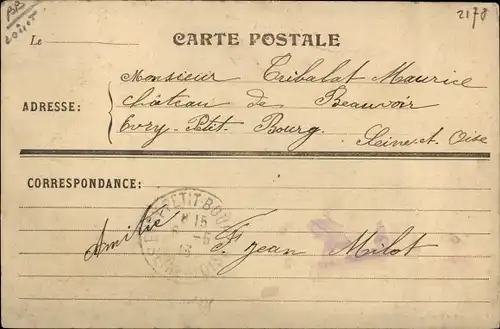 2178
Le
CARTE POSTALE
ADRESSE:
Monsieur Tribalat Maurice
château de Beauvoir
Evry-Petit-Bourg. Seine et Oise
CORRESPONDANCE:
PETIT-BOU
8 15
Amitié F. Jean Milot